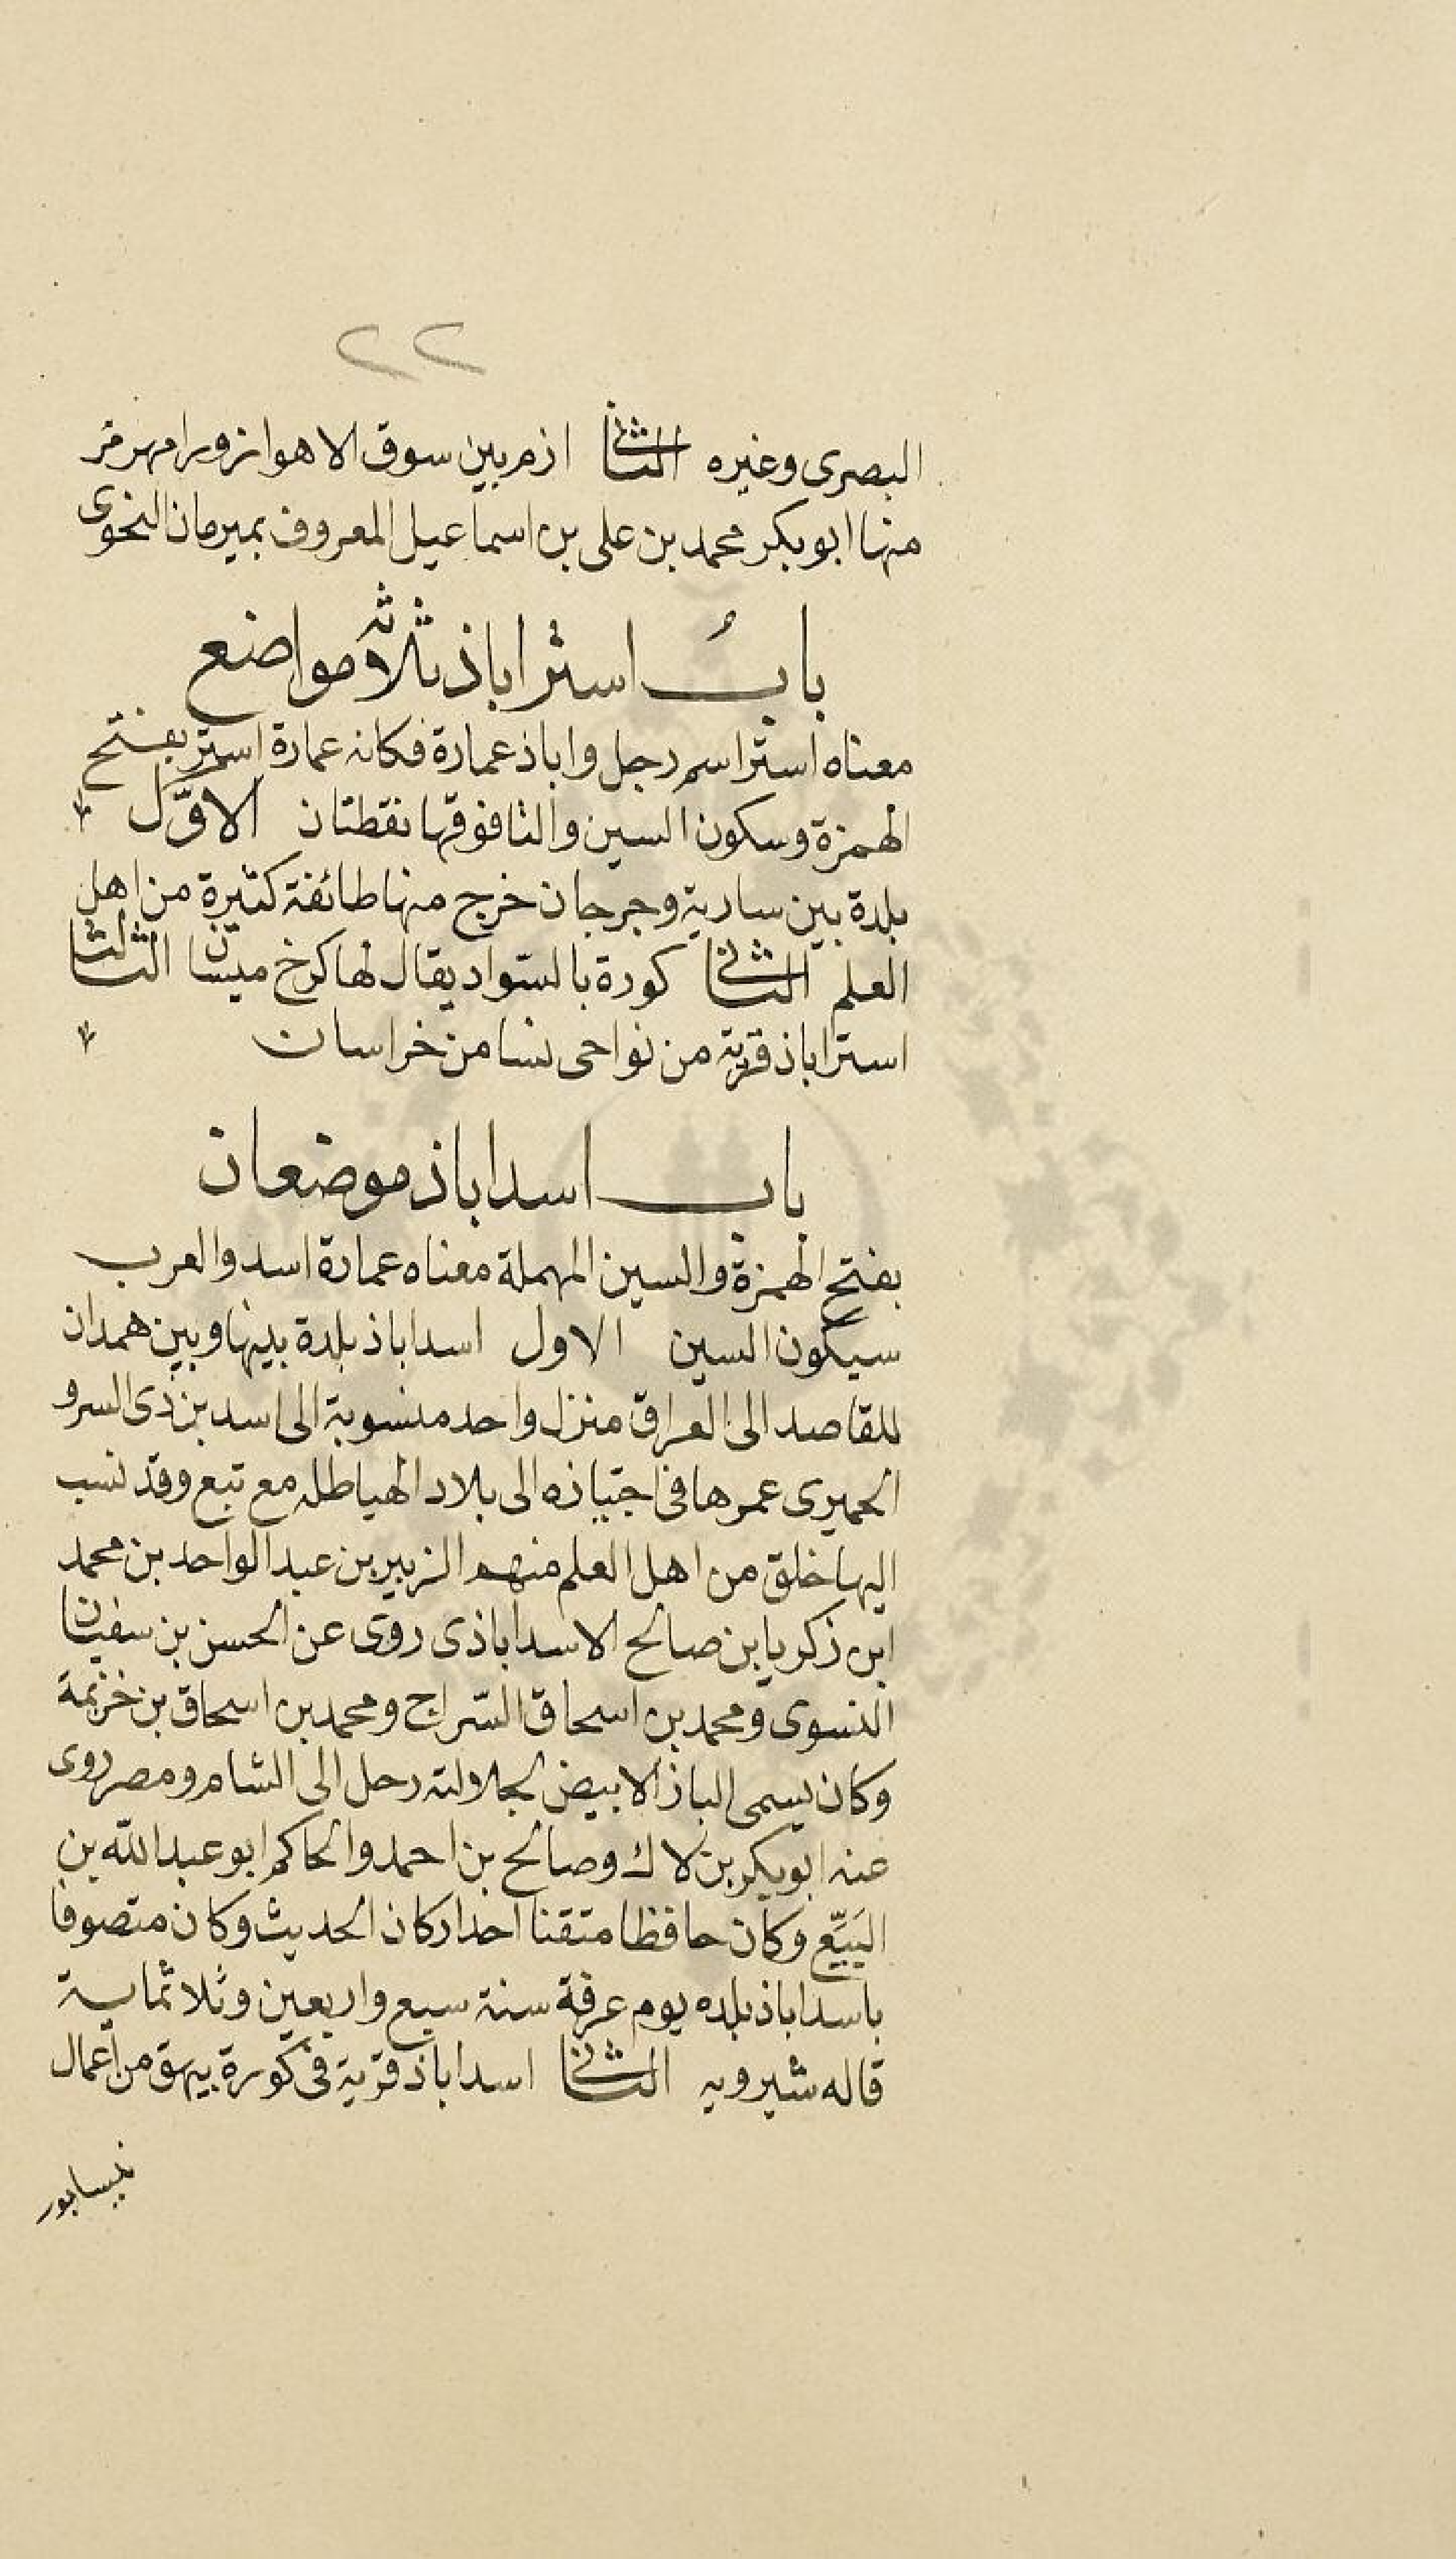 ٢٢
البصرى وغيره الثانى ازم بين سوق الاهواز ورامهرمز
منها ابو بكر محمد بن على بن اسماعيل المعروف بمبرمان النحوى
باب استراباذ ثلاثة مواضع
معناه استر اسم رجل واباذ عمارة فكانه عمارة استر بفتح
الهمزة وسكون السين والتا فوقها نقطتان الاوّل
بلدة بين سارية وجرجان خرج منها طائفة كثيرة من اهل
العلم الثانى كورة بالسواد يقال لها كرخ ميسان الثالث
استراباذ قرية من نواحى نسا من خراسان
باب اسداباذ موضعان
بفتح الهمزة والسين المهملة معناه عمارة اسد والعرب
سيكون السين الاول اسداباذ بلدة بينها وبين همدان
للقاصد الى العراق منزل واحد منسوبة الى اسد بن ذى السرو
الحميرى عمرها فى اجتيازه الى بلاد الهياطله مع تبع وقد نسب
اليها خلق من اهل العلم منهم الزبير بن عبد الواحد بن محمد
ابن زكريا بن صالح الاسداباذى روى عن الحسن بن سفيان
النسوى ومحمد بن اسحاق السّراج ومحمد بن اسحاق بن خزيمة
وكان يسمى الباز الابيض لجلالته رحل الى الشام ومصر روى
عنه ابو بكر بن لال وصالح بن احمد والحاكم ابو عبد الله بن
البَيِّع وكان حافظا متقنا احد اركان الحديث وكان متصوفا
باسداباذ بلده يوم عرفة سنة سبع واربعين وثلاثماية
قاله شيرويه الثانى اسداباذ قرية فى كورة بيهق من اعمال
نيسابور